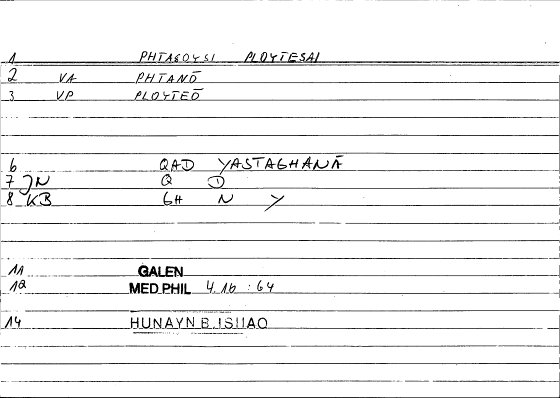 1 PHTASOYSI PLOYTESAI
2 VA PHTANŌ
3 VP PLOYTEŌ
6 QAD YASTAGHANĀ
7 JN Q 1
8 KB GH N Y
11 GALEN
12 MED.PHIL 4.16 : 64
14 HUNAYN B. ISHAQ